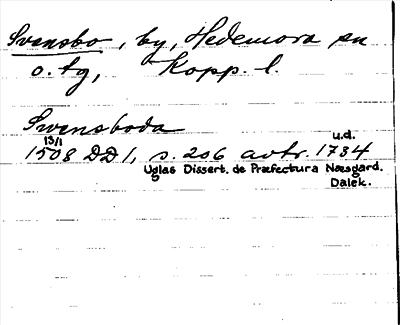 Svensbo, by, Hedemora sn
o. tg, Kopp. l.
Swensboda
13/1 u.d.
1508 DD 1, s. 206 avtr. 1734
Uglas Dissert. de Præfectura Næsgard.
Dalek.